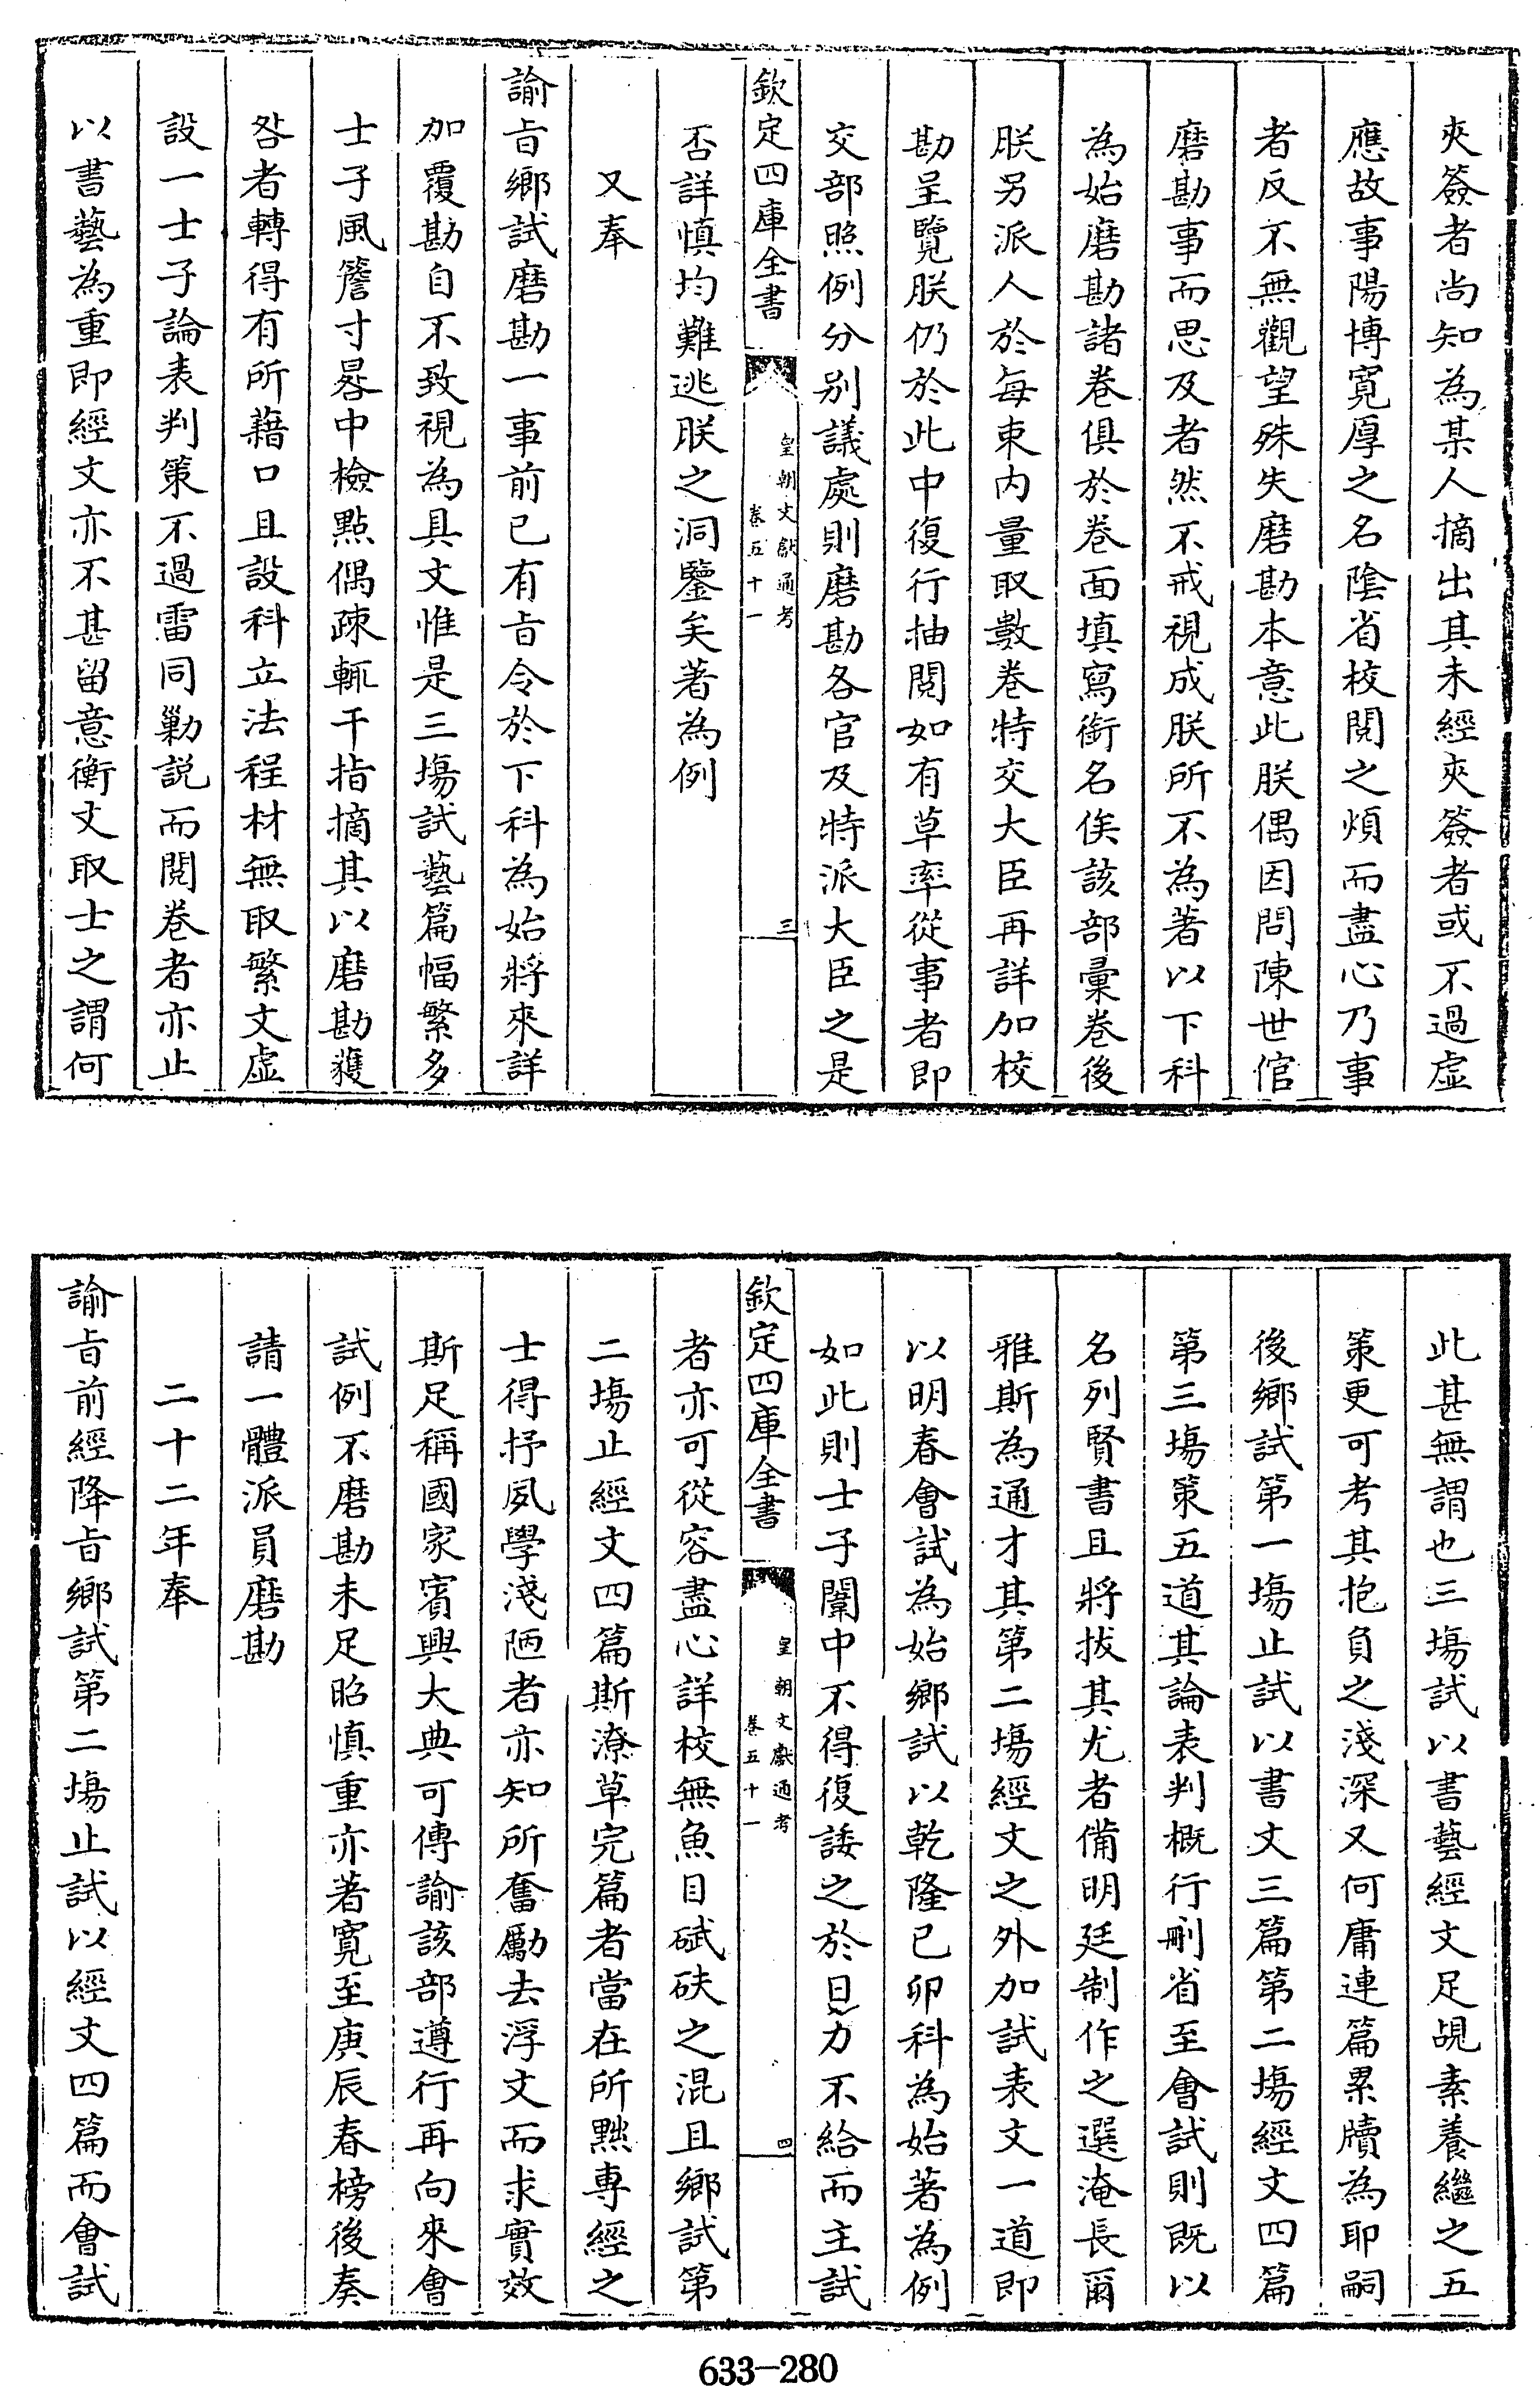 夾簽者尚知為某人摘出其未經夾簽者或不過虛
應故事陽博寛厚之名陰省校閱之煩而盡心乃事
者反不無觀望殊失磨勘本意此朕偶因問陳世倌
磨勘事而思及者然不戒視成朕所不為著以下科
為始磨勘諸卷俱於卷面填寫銜名俟該部彙卷後
朕另派人於每束内量取數卷特交大臣再詳加校
勘呈覽朕仍於此中復行抽閱如有草率從事者即
交部照例分别議處則磨勘各官及特派大臣之是
欽定四庫全書
皇朝文獻通考
卷五十一
三
否詳慎均難逃朕之洞鑒矣著為例
又奉
諭㫖鄉試磨勘一事前已有㫖令於下科為始將來詳
加覆勘自不致視為具文惟是三場試藝篇幅繁多
士子風簷寸晷中檢點偶疎輒干指摘其以磨勘獲
咎者轉得有所藉口且設科立法程材無取繁文虛
設一士子論表判策不過雷同勦説而閱卷者亦止
以書藝為重即經文亦不甚留意衡文取士之謂何
此甚無謂也三場試以書藝經文足覘素養繼之五
策更可考其抱負之淺深又何庸連篇累牘為耶嗣
後鄉試第一場止試以書文三篇第二場經文四篇
第三場策五道其論表判概行刪省至會試則既以
名列賢書且將拔其尤者備明廷制作之選淹長爾
雅斯為通才其第二場經文之外加試表文一道即
以明春會試為始鄉試以乾隆已卯科為始著為例
如此則士子闈中不得復諉之於日力不給而主試
欽定四庫全書
皇朝文獻通考
卷五十一
四
者亦可從容盡心詳校無魚目碔砆之混且鄉試第
二場止經文四篇斯潦草完篇者當在所黜專經之
士得抒夙學淺陋者亦知所奮勵去浮文而求實效
斯足稱國家賓興大典可傳諭該部遵行再向來會
試例不磨勘未足昭慎重亦著寛至庚辰春榜後奏
請一體派員磨勘
二十二年奉
諭㫖前經降㫖鄉試第二場止試以經文四篇而會試
633-280